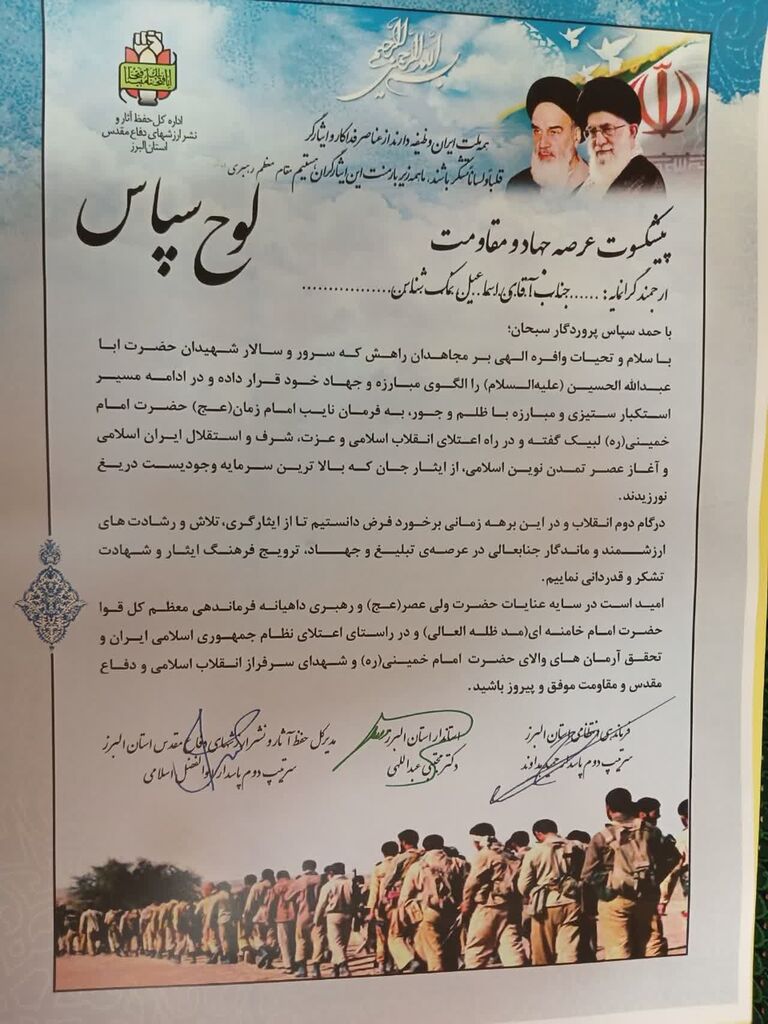 بسم الله الرحمن الرحیم
اداره کل حفظ آثار و
نشر ارزشهای دفاع مقدس
استان البرز
همه ملت ایران وظیفه دارند از عناصر فداکار و ایثارگر
قلباً و لساناً متشکر باشند، ما همه زیر بار منت این ایثارگران هستیم مقام معظم رهبری
لوح سپاس
پیشکسوت عرصه جهاد و مقاومت
ارجمند گرانمایه: ......جناب آقای اسماعیل نمک شناس.................
با حمد سپاس پروردگار سبحان؛
با سلام و تحیات وافره الهی بر مجاهدان راهش که سرور و سالار شهیدان حضرت ابا
عبدالله الحسین (علیه‌السلام) را الگوی مبارزه و جهاد خود قرار داده و در ادامه مسیر
استکبار ستیزی و مبارزه با ظلم و جور، به فرمان نایب امام زمان(عج) حضرت امام
خمینی(ره) لبیک گفته و در راه اعتلای انقلاب اسلامی و عزت، شرف و استقلال ایران اسلامی
و آغاز عصر تمدن نوین اسلامی، از ایثار جان که بالا ترین سرمایه وجودیست دریغ
نورزیدند.
درگام دوم انقلاب و در این برهه زمانی برخورد فرض دانستیم تا از ایثارگری، تلاش و رشادت های
ارزشمند و ماندگار جنابعالی در عرصه‌ی تبلیغ و جهاد، ترویج فرهنگ ایثار و شهادت
تشکر و قدردانی نماییم.
امید است در سایه عنایات حضرت ولی عصر(عج) و رهبری داهیانه فرماندهی معظم کل قوا
حضرت امام خامنه ای(مد ظله العالی) و در راستای اعتلای نظام جمهوری اسلامی ایران و
تحقق آرمان های والای حضرت امام خمینی(ره) و شهدای سرفراز انقلاب اسلامی و دفاع
مقدس و مقاومت موفق و پیروز باشید.
فرماندهی انتظامی استان البرز
سرتیپ دوم پاسدار
استاندار استان البرز
دکتر مجتبی عبداللهی
مدیرکل حفظ آثار و نشر ارزشهای دفاع مقدس استان البرز
سرتیپ دوم پاسدار ابوالفضل اسلامی